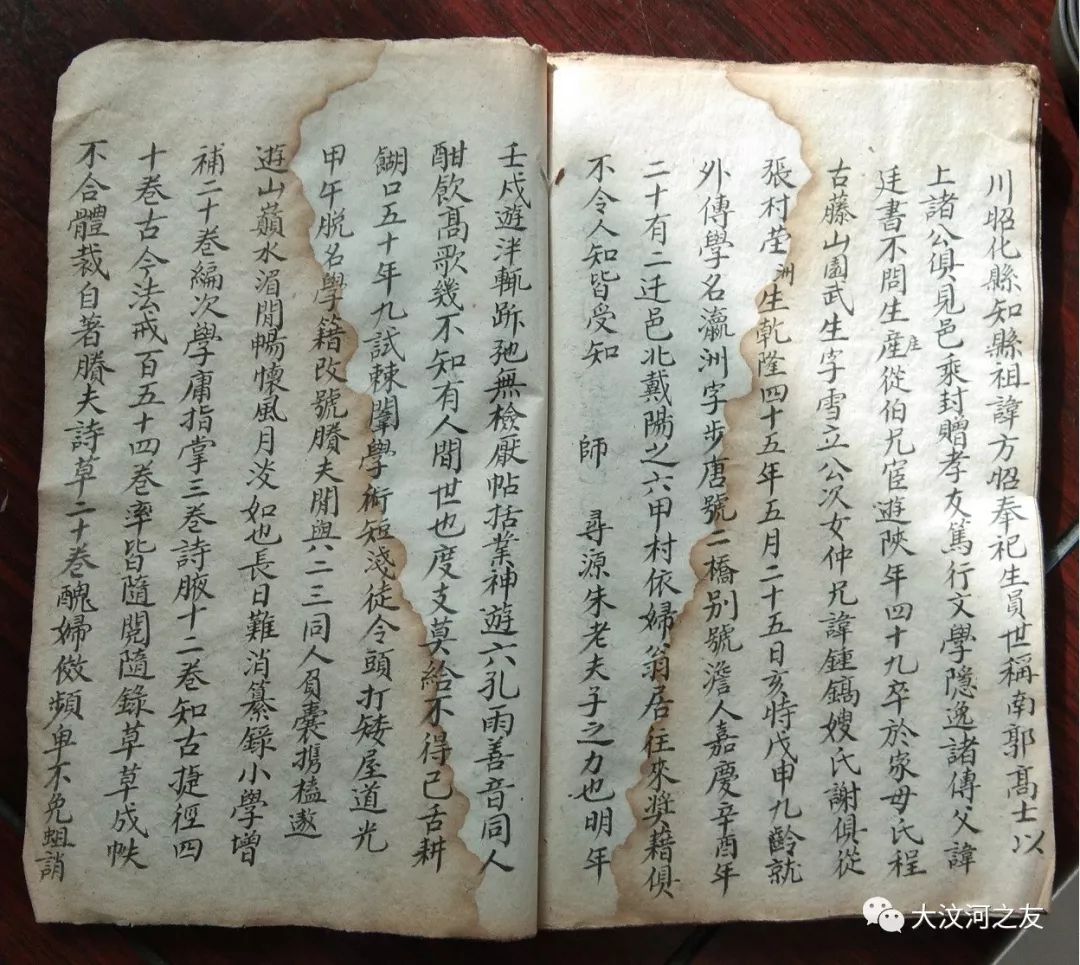 川昭化縣知縣祖諱方昭奉祀生員世稱南郭髙士以
上諸公俱見邑乘封贈孝友篤行文學隱逸諸傳父諱
廷書不問生産庄從伯兄宦遊陝年四十九卒於家母氏程
古藤山園武生字雪立公次女仲兄諱鍾鎬嫂氏謝俱從
張村塋洲生乾隆四十五年五月二十五日亥時戊申九齡就
外傳學名瀛洲字步唐號二橋别號澹人嘉慶辛酉年
二十有二迁邑北戴陽之六甲村依婦翁居往來奬藉俱
不令人知皆受知 師 尋源朱老夫子之力也明年
壬戌遊泮輒跅弛無檢厭帖括業神遊六孔雨善音同人
酣飲髙歌幾不知有人間世也度支莫給不得已舌耕
餬口五十年九試棘闈學術短淺徒令頭打矮屋道光
甲午脱名學籍改號賸夫閒與八二三同人負囊携榼遨
遊山巔水湄閒暢懷風月泼如也長日難消纂錄小學增
補二十卷編次學庸指掌三卷詩腋十二卷知古捷徑四
十卷古今法戒百五十四卷率皆隨閱隨錄草草成帙
不合體裁自著賸夫詩草二十卷醜婦傚頻卑不免蛆誚
大汶河之友